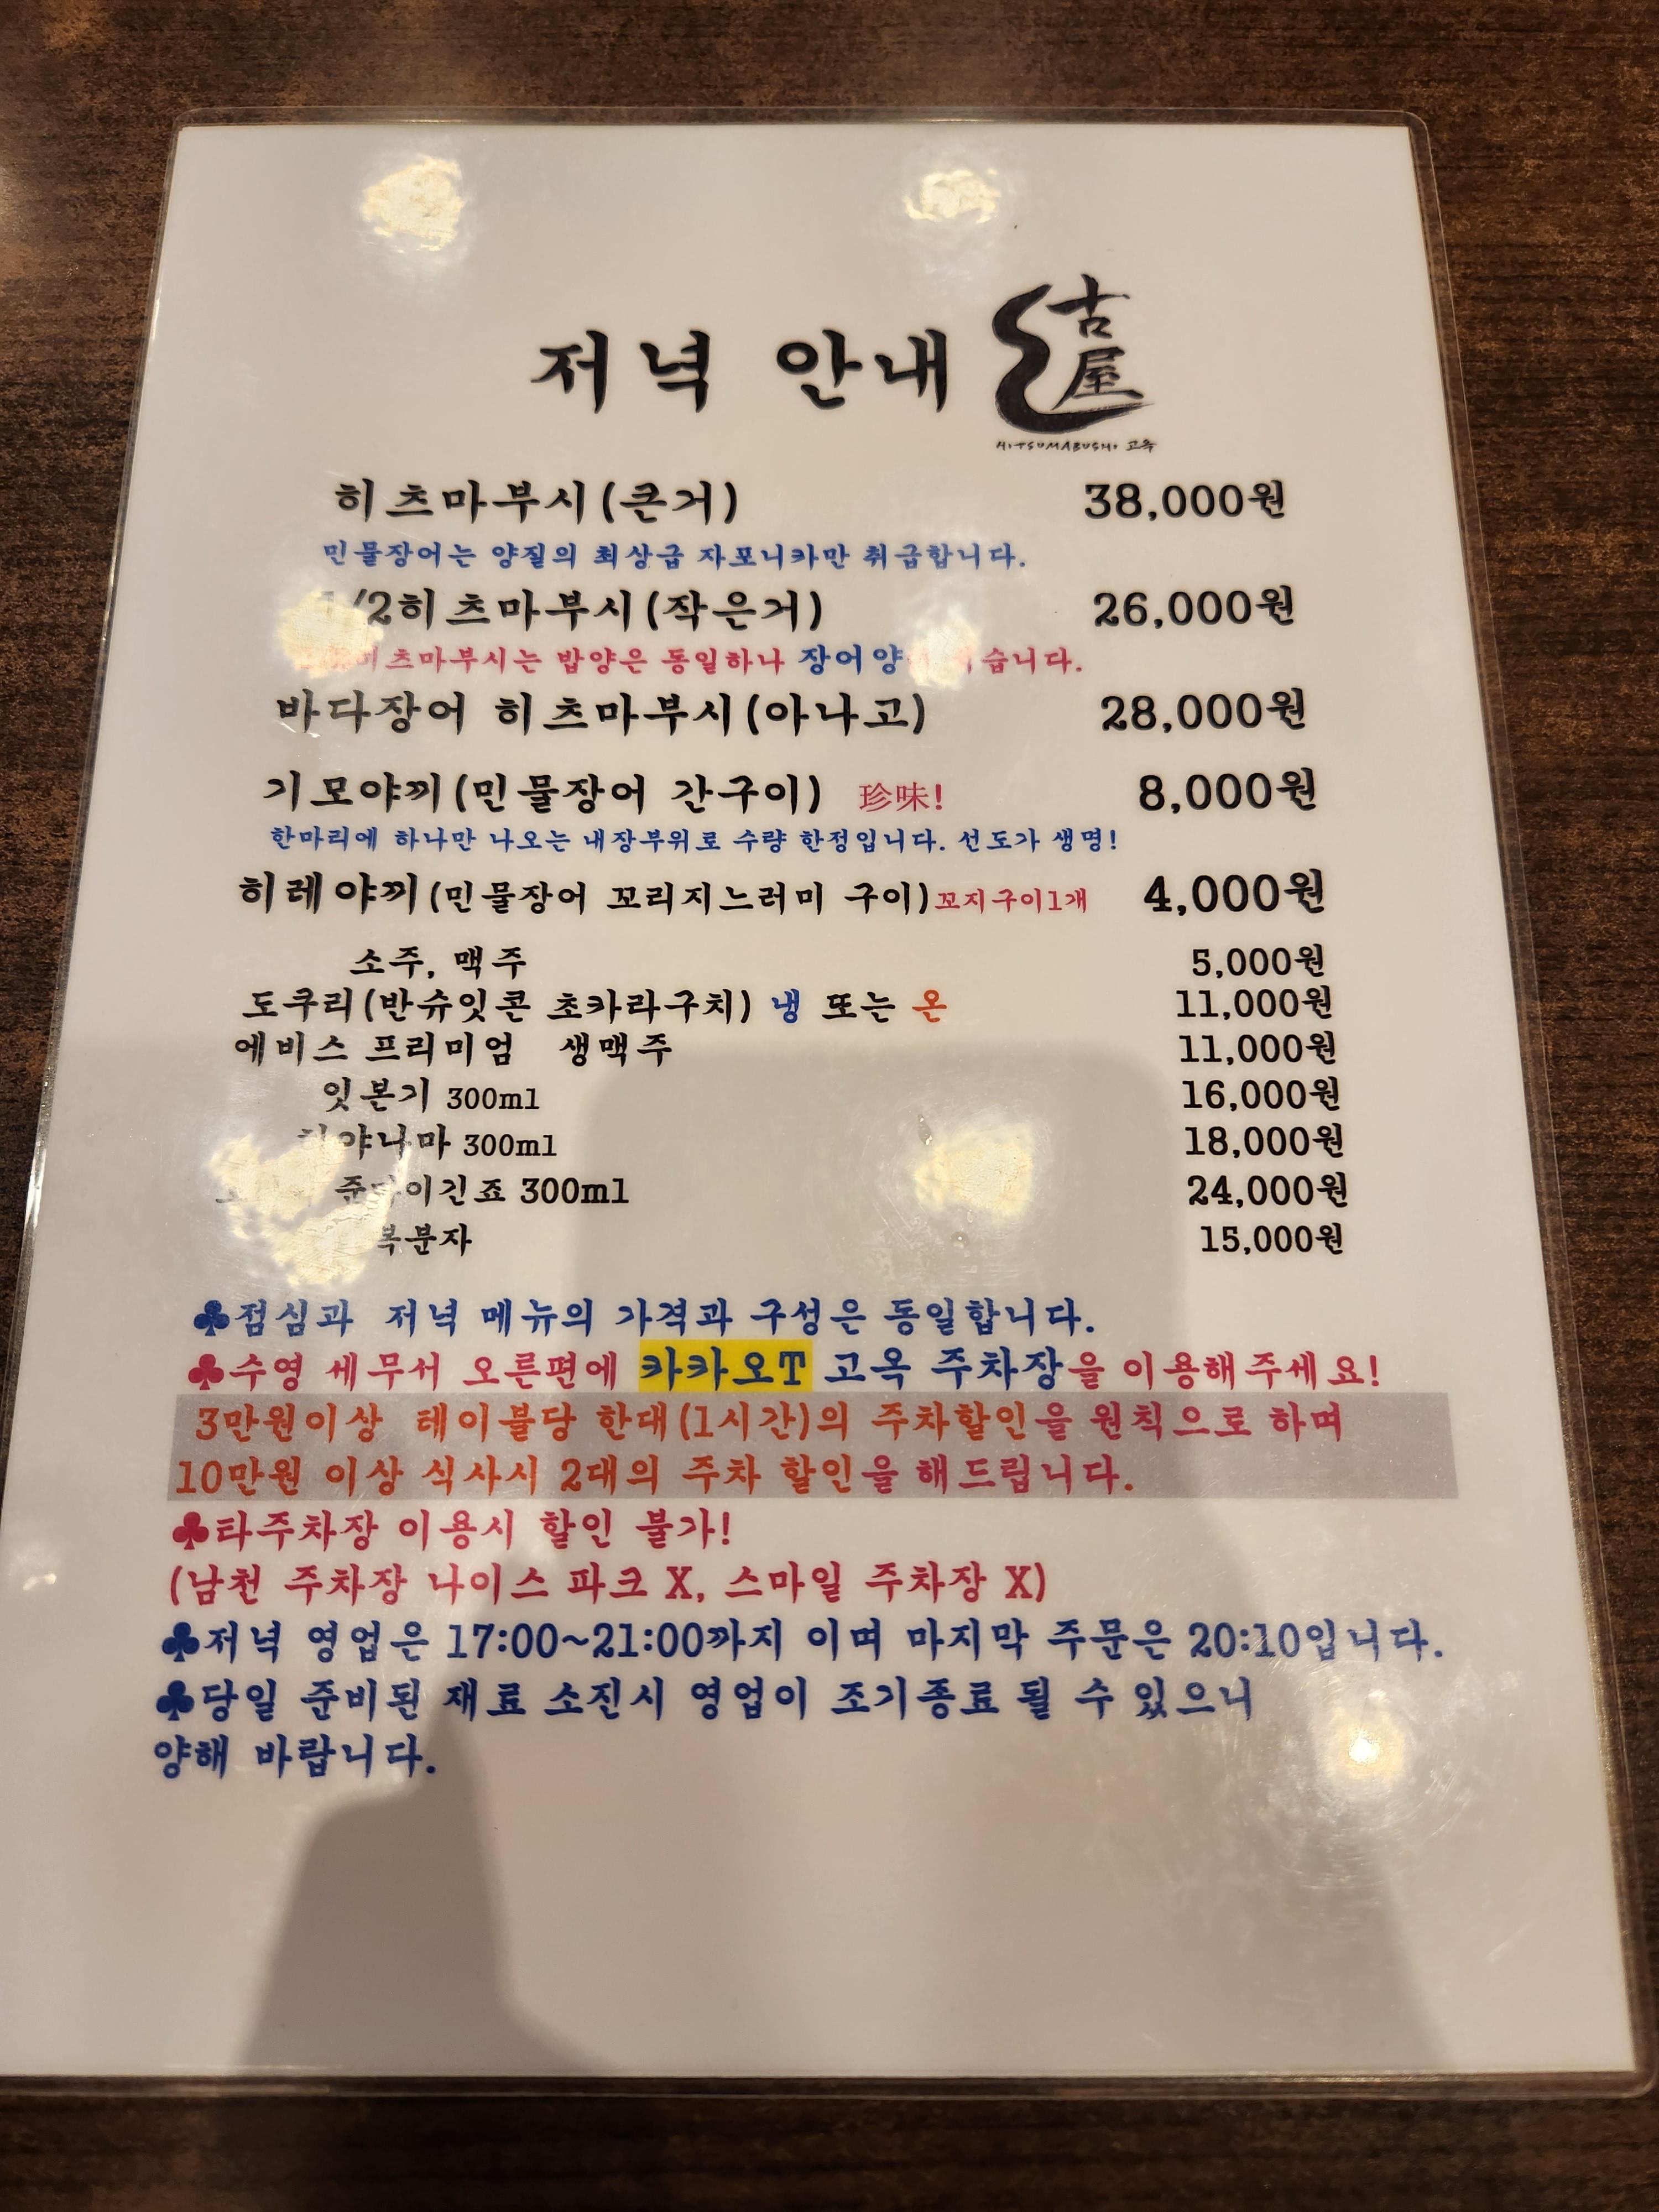 저녁 안내
古屋
HITSUMABUSHI 고옥
히츠마부시(큰거) 38,000원
민물장어는 양질의 최상급 자포니카만 취급합니다.
1/2히츠마부시(작은거) 26,000원
히츠마부시는 밥양은 동일하나
바다장어 히츠마부시(아나고) 28,000원
기모야끼(민물장어 간구이) 珍味! 8,000원
한마리에 하나만 나오는 내장부위로 수량 한정입니다. 선도가 생명!
히레야끼(민물장어 꼬리지느러미 구이)꼬지구이1개 4,000원
소주, 맥주 5,000원
도쿠리(반슈잇콘 초카라구치) 냉 또는 온 11,000원
에비스 프리미엄 생맥주 11,000원
잇본기 300ml 16,000원
300ml 18,000원
300ml 24,000원
복분자 15,000원
♣점심과 저녁 메뉴의 가격과 구성은 동일합니다.
♣수영 세무서 오른편에 카카오T 고옥 주차장을 이용해주세요!
3만원이상 테이블당 한대(1시간)의 주차할인을 원칙으로 하며
10만원 이상 식사시 2대의 주차 할인을 해드립니다.
♣타주차장 이용시 할인 불가!
(남천 주차장 나이스 파크 X, 스마일 주차장 X)
♣저녁 영업은 17:00~21:00까지 이며 마지막 주문은 20:10입니다.
♣당일 준비된 재료 소진시 영업이 조기종료 될 수 있으니
양해 바랍니다.